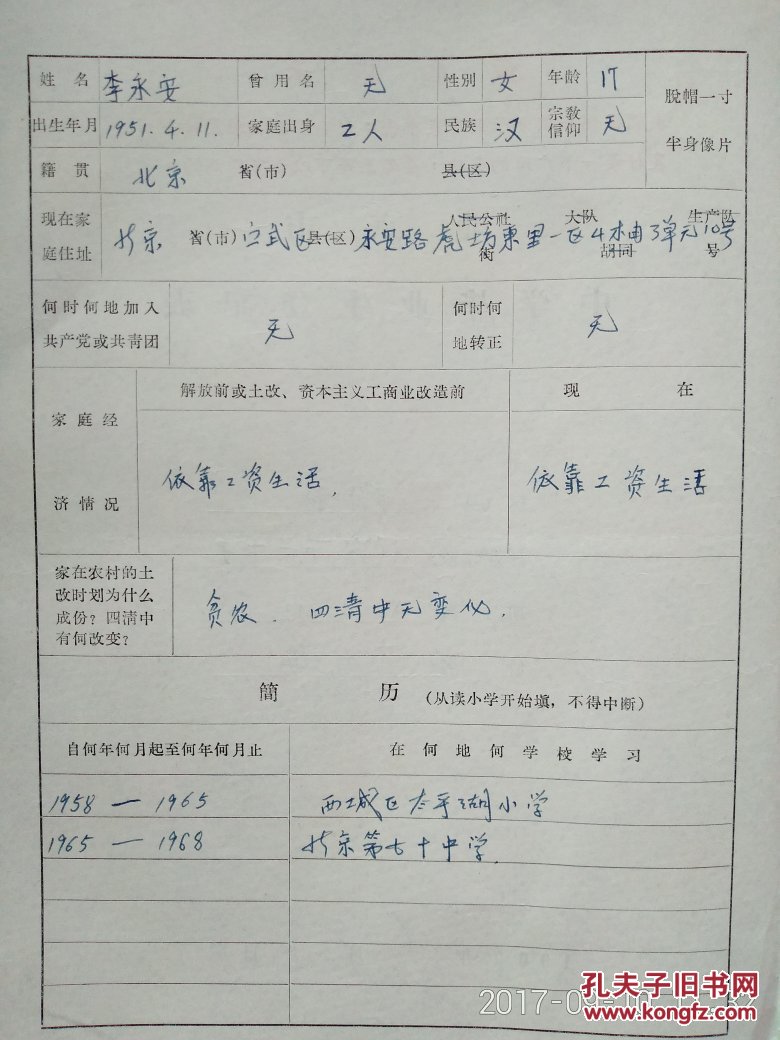 姓名 李永安 曾用名 无 性别 女 年龄 17
脱帽一寸
半身像片
出生年月 1951.4.11. 家庭出身 工人 民族 汉 宗教信仰 无
籍贯 北京 省(市) 县(区)
现在家庭住址 北京 省(市) 宣武区 县(区) 永安路 虎坊东里一区4 3单元10号
人民公社 大队 生产队
街 胡同 号
何时何地加入共产党或共青团 无 何时何地转正 无
家庭经济情况
解放前或土改、资本主义工商业改造前 现在
依靠工资生活, 依靠工资生活
家在农村的土
改时划为什么
成份？四清中
有何改变？
贫农. 四清中无变化.
簡历 (从读小学开始填，不得中断)
自何年何月起至何年何月止 在何地何学校学习
1958 — 1965 西城区太平湖小学
1965 — 1968 北京第七十中学.
2017-09-10
孔夫子旧书网
www.kongfz.com